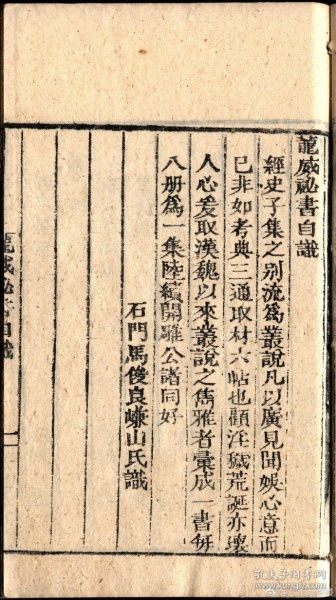 龍威祕書自識
經史子集之别流爲叢說凡以廣見聞娛心意而
已非如考典三通取材六帖也顧汪穢荒誕亦壞
人心爰取漢魏以來叢說之雋雅者彙成一書每
八册爲一集陸續開雕公諸同好
石門馬俊良嵰山氏識
龍威祕書自識
孔夫子旧书网
www.kongfz.com